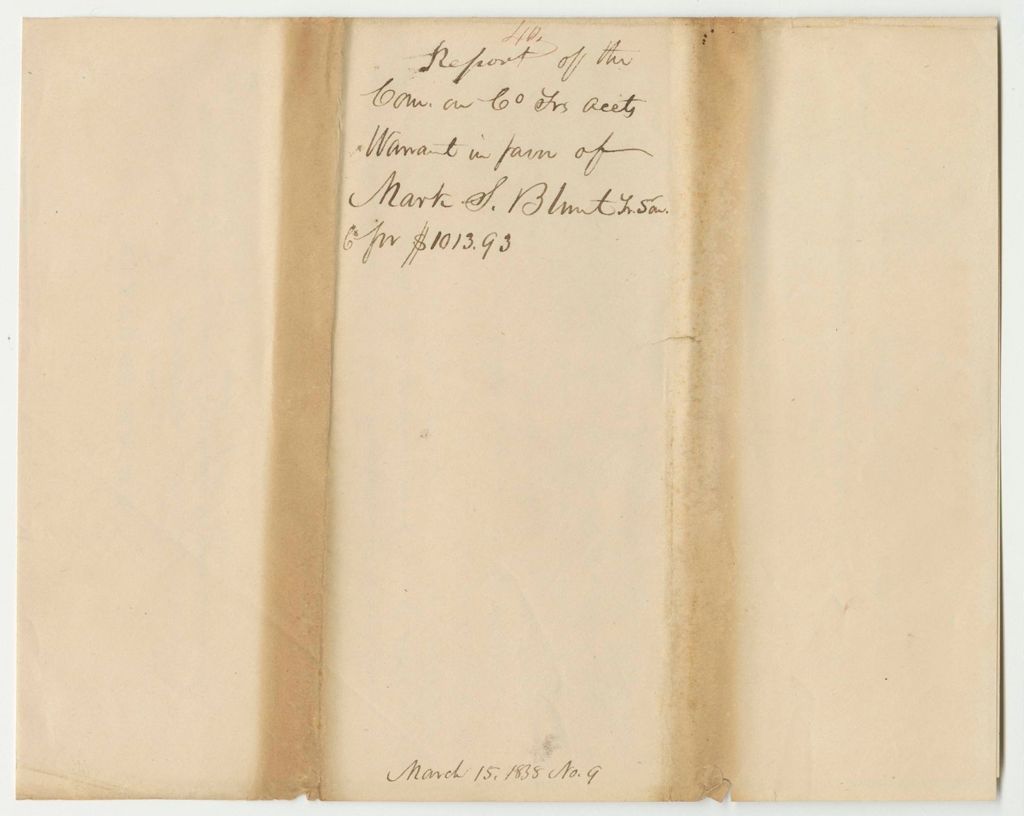 40.
Report of the
Com. on Co Trs accts
Warrant in favor of
Mark S. Blunt Tr. Som.
Co for $1013.93
March 15. 1838 No. 9